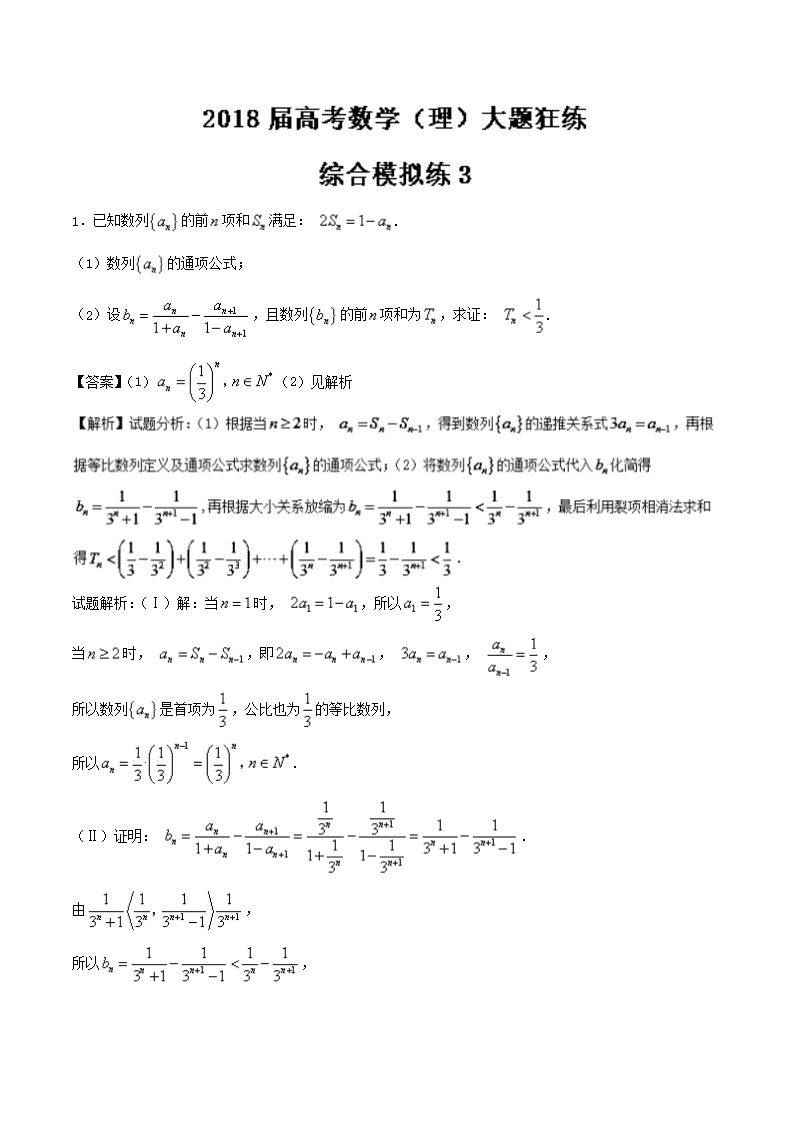 2018 届高考数学（理）大题狂练
综合模拟练 3
1．已知数列{aₙ}的前n项和Sₙ满足： 2Sₙ = 1 − aₙ．
（1）数列{aₙ}的通项公式；
（2）设bₙ = aₙ/(1+aₙ) − aₙ₊₁/(1−aₙ₊₁)，且数列{bₙ}的前n项和为Tₙ，求证： Tₙ < 1/3．
【答案】（1）aₙ = (1/3)ⁿ，n ∈ N*（2）见解析
【解析】试题分析：（1）根据当n ≥ 2时， aₙ = Sₙ − Sₙ₋₁，得到数列{aₙ}的递推关系式3aₙ = aₙ₋₁，再根
据等比数列定义及通项公式求数列{aₙ}的通项公式；（2）将数列{aₙ}的通项公式代入bₙ化简得
bₙ = 1/(3ⁿ+1) − 1/(3ⁿ⁺¹−1)，再根据大小关系放缩为bₙ = 1/(3ⁿ+1) − 1/(3ⁿ⁺¹−1) < 1/3ⁿ − 1/3ⁿ⁺¹，最后利用裂项相消法求和
得Tₙ < (1/3 − 1/3²) + (1/3² − 1/3³) + ⋯ + (1/3ⁿ − 1/3ⁿ⁺¹) = 1/3 − 1/3ⁿ⁺¹ < 1/3．
试题解析：（Ⅰ）解：当n = 1时， 2a₁ = 1 − a₁，所以a₁ = 1/3，
当n ≥ 2时， aₙ = Sₙ − Sₙ₋₁，即2aₙ = −aₙ + aₙ₋₁， 3aₙ = aₙ₋₁， aₙ/aₙ₋₁ = 1/3，
所以数列{aₙ}是首项为1/3，公比也为1/3的等比数列，
所以aₙ = 1/3·(1/3)ⁿ⁻¹ = (1/3)ⁿ，n ∈ N*．
（Ⅱ）证明： bₙ = aₙ/(1+aₙ) − aₙ₊₁/(1−aₙ₊₁) = (1/3ⁿ)/(1+1/3ⁿ) − (1/3ⁿ⁺¹)/(1−1/3ⁿ⁺¹) = 1/(3ⁿ+1) − 1/(3ⁿ⁺¹−1)．
由1/(3ⁿ+1)⟨1/3ⁿ, 1/(3ⁿ⁺¹−1)⟩1/3ⁿ⁺¹，
所以bₙ = 1/(3ⁿ+1) − 1/(3ⁿ⁺¹−1) < 1/3ⁿ − 1/3ⁿ⁺¹，